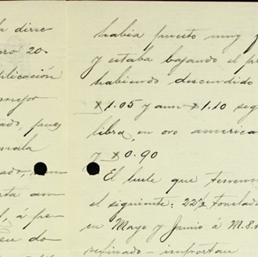 a dire
ero 20.
plicación
mejor
ado, pues
mala
ado,
ta am
l, á pe
su do
había puesto muy
y estaba bajando el p
habiendo descendido
$1.05 y aun $1.10
libra, en oro america
y $0.90
El hule que tenemos
el siguiente: 22½ tonelad
en Mayo y Junio á M.
refinado – importan